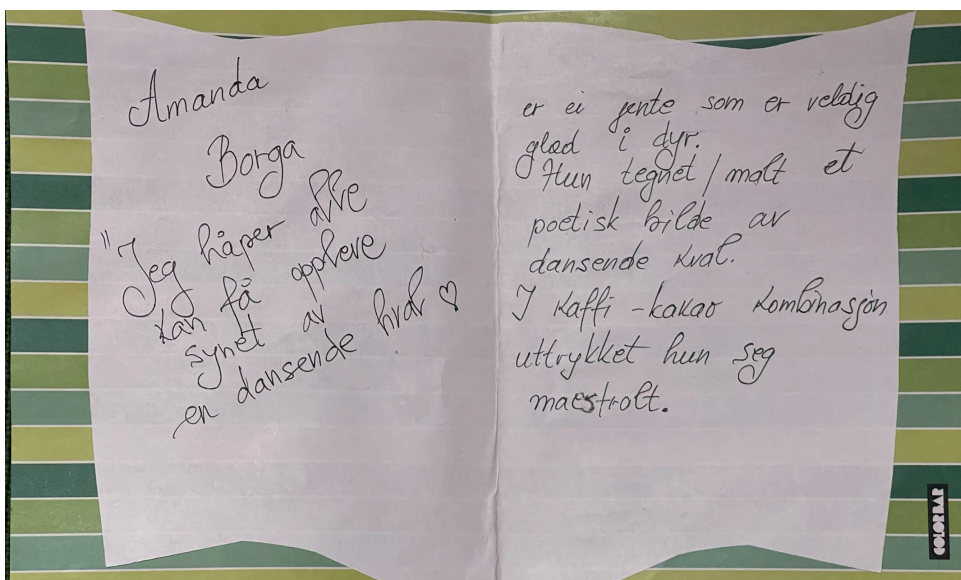 Amanda
Borga
"Jeg håper alle
kan få oppleve
synet av
en dansende hval ♡
er ei jente som er veldig
glad i dyr.
Hun tegnet/malt et
poetisk bilde av
dansende kval.
I kaffi-kakao kombinasjon
uttrykket hun seg
maestrolt.
COLORBAR